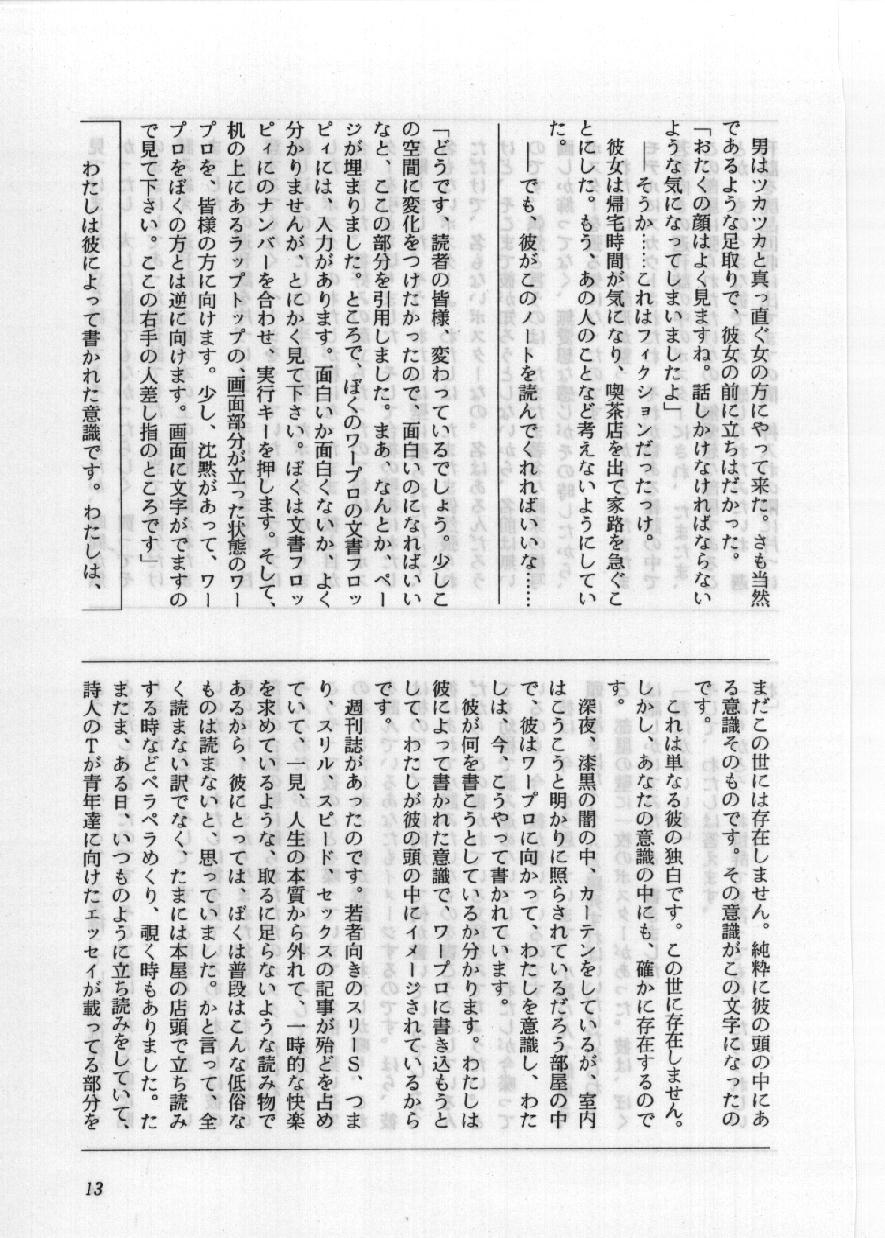 男はツカツカと真っ直ぐ女の方にやって来た。さも当然
であるような足取りで、彼女の前に立ちはだかった。
「おたくの顔はよく見ますね。話しかけなければならない
ような気になってしまいましたよ」
――そうか……これはフィクションだったっけ。
彼女は帰宅時間が気になり、喫茶店を出て家路を急ぐこ
とにした。もう、あの人のことなど考えないようにしてい
た。
――でも、彼がこのノートを読んでくれればいいな……
「どうです、読者の皆様、変わっているでしょう。少しこ
の空間に変化をつけたかったので、面白いのになればいい
なと、ここの部分を引用しました。まあ、なんとか、ペー
ジが埋まりました。ところで、ぼくのワープロの文書フロッ
ピィには、入力があります。面白いか面白くないか、よく
分かりませんが、とにかく見て下さい。ぼくは文書フロッ
ピィにのナンバーを合わせ、実行キーを押します。そして、
机の上にあるラップトップの、画面部分が立った状態のワー
プロを、皆様の方に向けます。少し、沈黙があって、ワー
プロをぼくの方とは逆に向けます。画面に文字がでますの
で見て下さい。ここの右手の人差し指のところです」
わたしは彼によって書かれた意識です。わたしは、
まだこの世には存在しません。純粋に彼の頭の中にあ
る意識そのものです。その意識がこの文字になったの
です。
これは単なる彼の独白です。この世に存在しません。
しかし、あなたの意識の中にも、確かに存在するので
す。
深夜、漆黒の闇の中、カーテンをしているが、室内
はこうこうと明かりに照らされているだろう部屋の中
で、彼はワープロに向かって、わたしを意識し、わた
しは、今、こうやって書かれています。
彼が何を書こうとしているか分かります。わたしは
彼によって書かれた意識で、ワープロに書き込もうと
して、わたしが彼の頭の中にイメージされているから
です。
週刊誌があったのです。若者向きのスリーS、つま
り、スリル、スピード、セックスの記事が殆どを占め
ていて、一見、人生の本質から外れて、一時的な快楽
を求めているような、取るに足らないような読み物で
あるから、彼にとっては、ぼくは普段はこんな低俗な
ものは読まないと、思っていました。かと言って、全
く読まない訳でなく、たまには本屋の店頭で立ち読み
する時などペラペラめくり、覗く時もありました。た
またま、ある日、いつものように立ち読みをしていて、
詩人のTが青年達に向けたエッセイが載ってる部分を
13